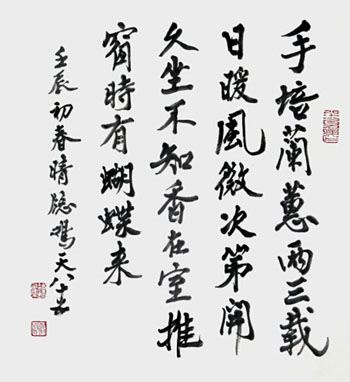 手培蘭蕙兩三載
日暖風微次第開
久坐不知香在室推
窗時有蝴蝶来
壬辰初春晴牕天八十